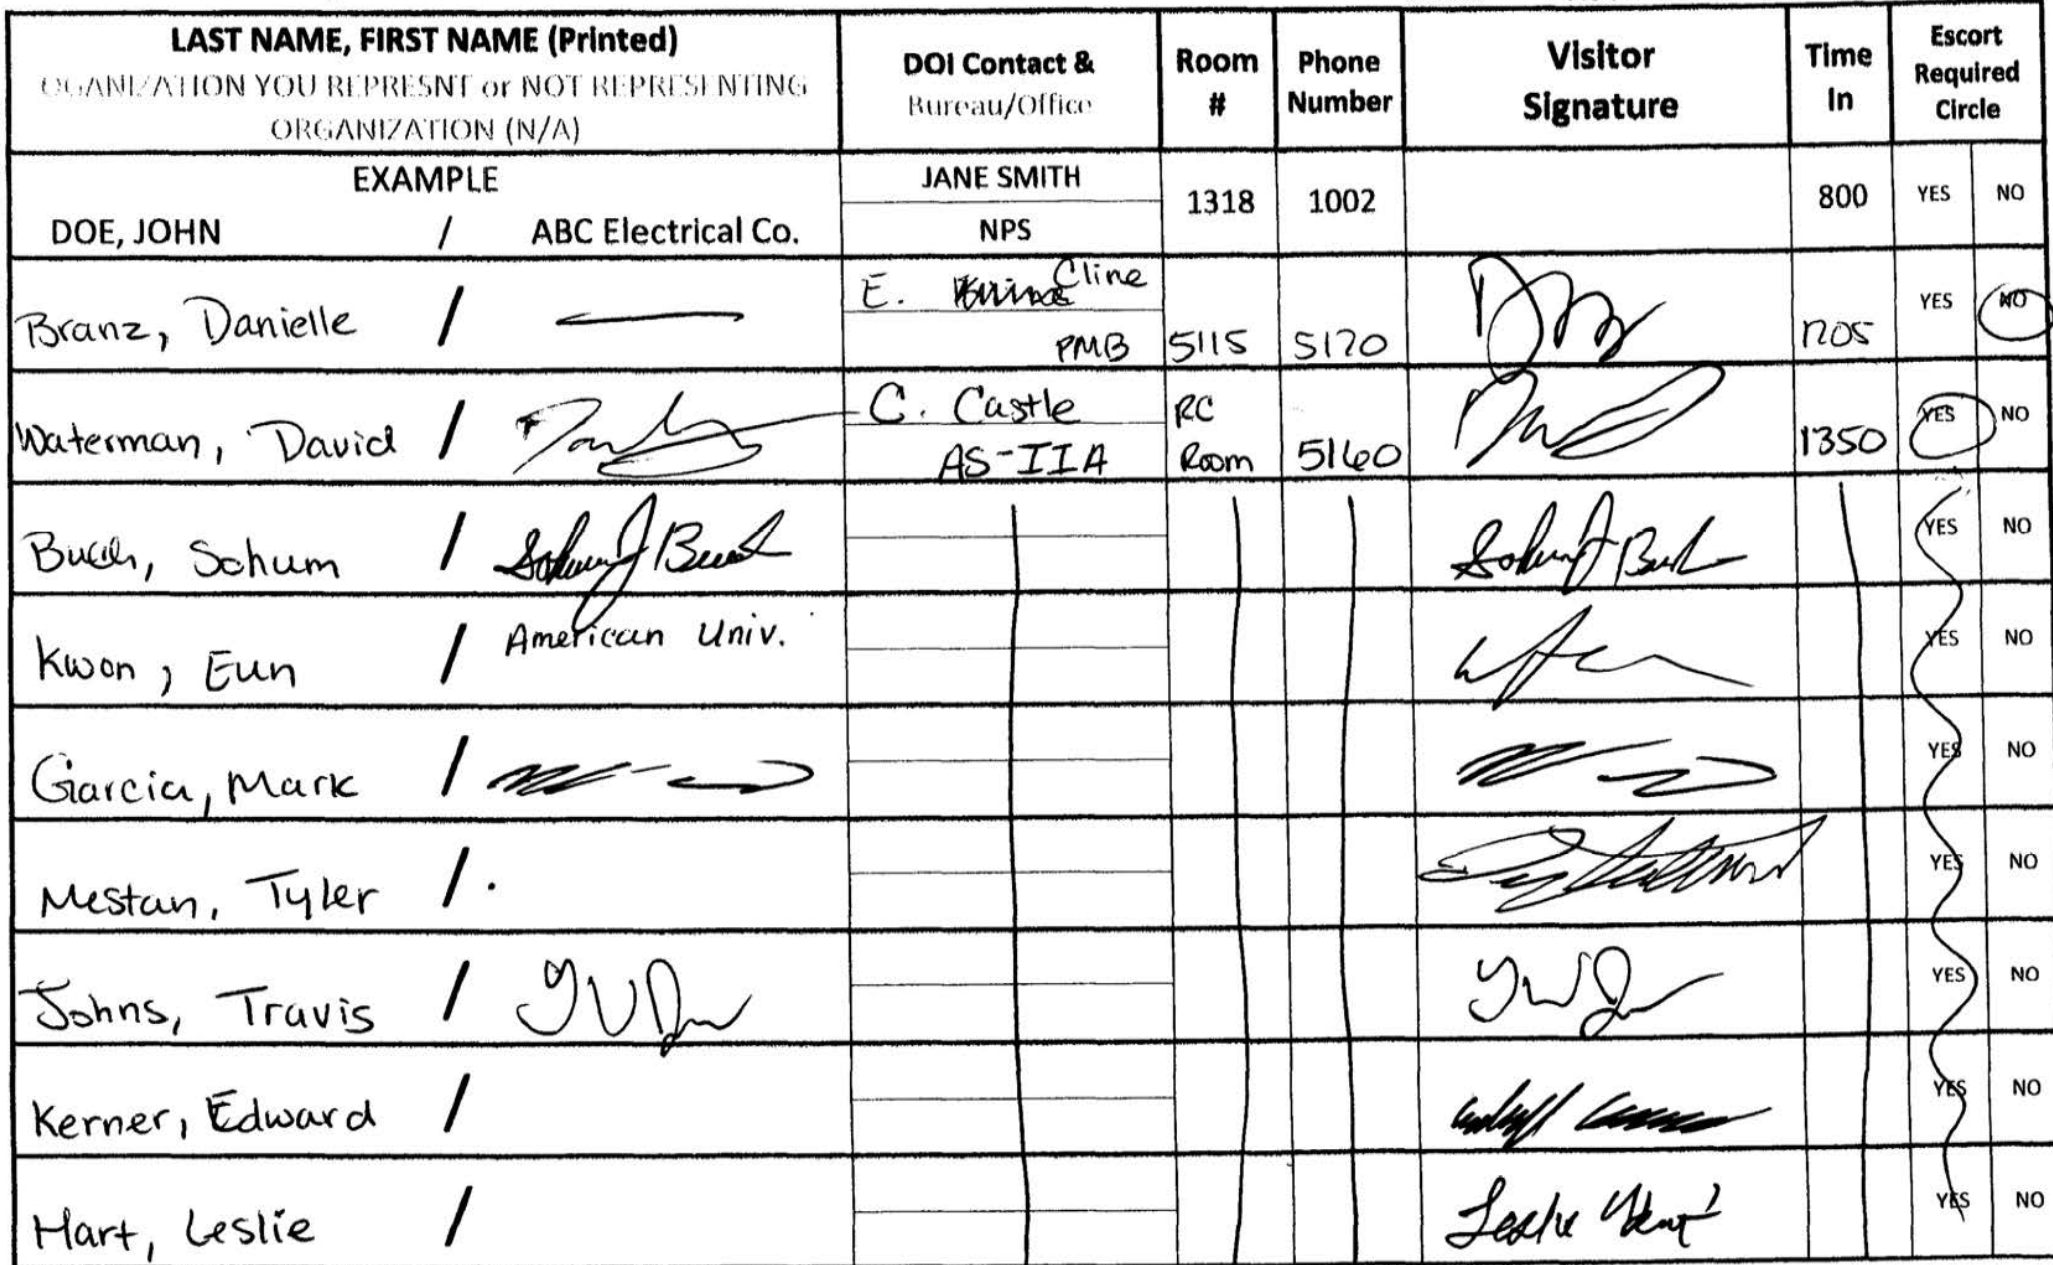 LAST NAME, FIRST NAME (Printed)
OGANIZATION YOU REPRESNT or NOT REPRESENTING
ORGANIZATION (N/A)
DOI Contact &
Bureau/Office
Room
#
Phone
Number
Visitor
Signature
Time
In
Escort
Required
Circle
EXAMPLE
DOE, JOHN / ABC Electrical Co.
JANE SMITH
NPS
1318
1002
800
YES NO
Branz, Danielle /
E. Cline
PMB
5115
5170
1205
YES NO
Waterman, David /
C. Castle
AS-IIA
RC
Room
5160
1350
YES NO
Schum /
YES NO
Kwon, Eun / American Univ.
YES NO
Garcia, Mark /
YES NO
Mestan, Tyler / .
YES NO
Johns, Travis /
YES NO
Kerner, Edward /
YES NO
Hart, Leslie /
Leslie Hart
YES NO